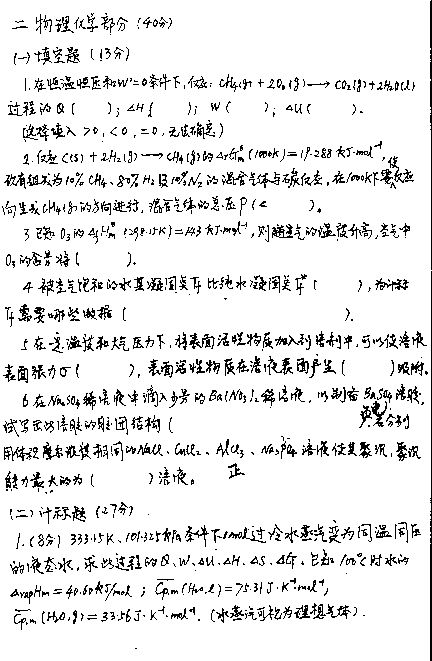 二 物理化学部分 (40分)
(一) 填空题 (13分)
1. 在恒温恒压和W'=0条件下, 反应: CH4(g) + 2O2(g) → CO2(g) + 2H2O(l)
过程的Q ( ); ΔH ( ); W ( ); ΔU ( ).
(选择填入 >0, <0, =0, 无法确定)
2. 反应 C(s) + 2H2(g) → CH4(g) 的 ΔrGm°(1000K) = 19.288 kJ·mol⁻¹,
若有组成为10% CH4、80% H2及10% N2的混合气体与碳反应, 在1000K下要使反应
向生成CH4(g)的方向进行, 混合气体的总压P ( ).
3. 已知 O3的ΔfHm°(298.15K) = 143 kJ·mol⁻¹, 则随空气的温度升高, 空气中
O3的含量将 ( ).
4. 被空气饱和的水其凝固点Tf比纯水凝固点Tf* ( ), 为计算
Tf需要哪些数据 ( ).
5. 在一定温度和大气压力下, 将表面活性物质加入到溶剂中, 可以使溶液
表面张力σ ( ), 表面活性物质在溶液表面产生 ( ) 吸附.
6. 在Na2SO4稀溶液中滴入少量的Ba(NO3)2稀溶液, 以制备BaSO4溶胶,
试写出溶胶的胶团结构 (
用体积摩尔浓度相同的NaCl、CuCl2、AlCl3、Na3PO4溶液使其聚沉, 聚沉
能力最大的为 ( ) 溶液. 正
(二) 计算题 (27分)
1. (8分) 333.15K、101.325kPa条件下1mol过冷水蒸汽变为同温同压
的液态水, 求此过程的Q、W、ΔU、ΔH、ΔS、ΔG. 已知100℃时水的
ΔvapHm = 40.60kJ/mol; Cp,m(H2O,l) = 75.31 J·K⁻¹·mol⁻¹,
Cp,m(H2O,g) = 33.56 J·K⁻¹·mol⁻¹. (水蒸汽可视为理想气体).